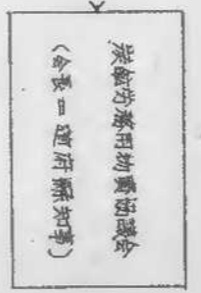 炭鉱労務用物資協議会
(会長=道府縣知事)